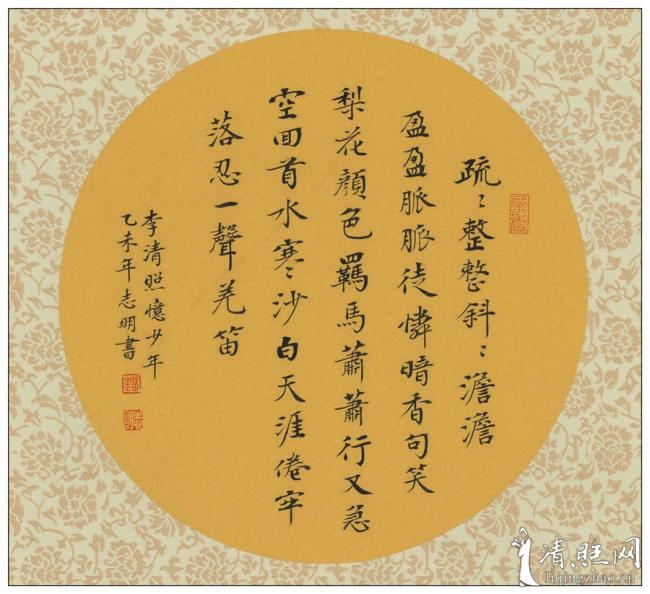 疏〻整整斜〻澹澹
盈盈脈脈徒憐暗香句笑
梨花顏色羈馬蕭蕭行又急
空回首水寒〻沙白天涯倦牢
落忍一聲羌笛
李清照憶少年
乙未年志明書
清照网
liqingzhao.cn